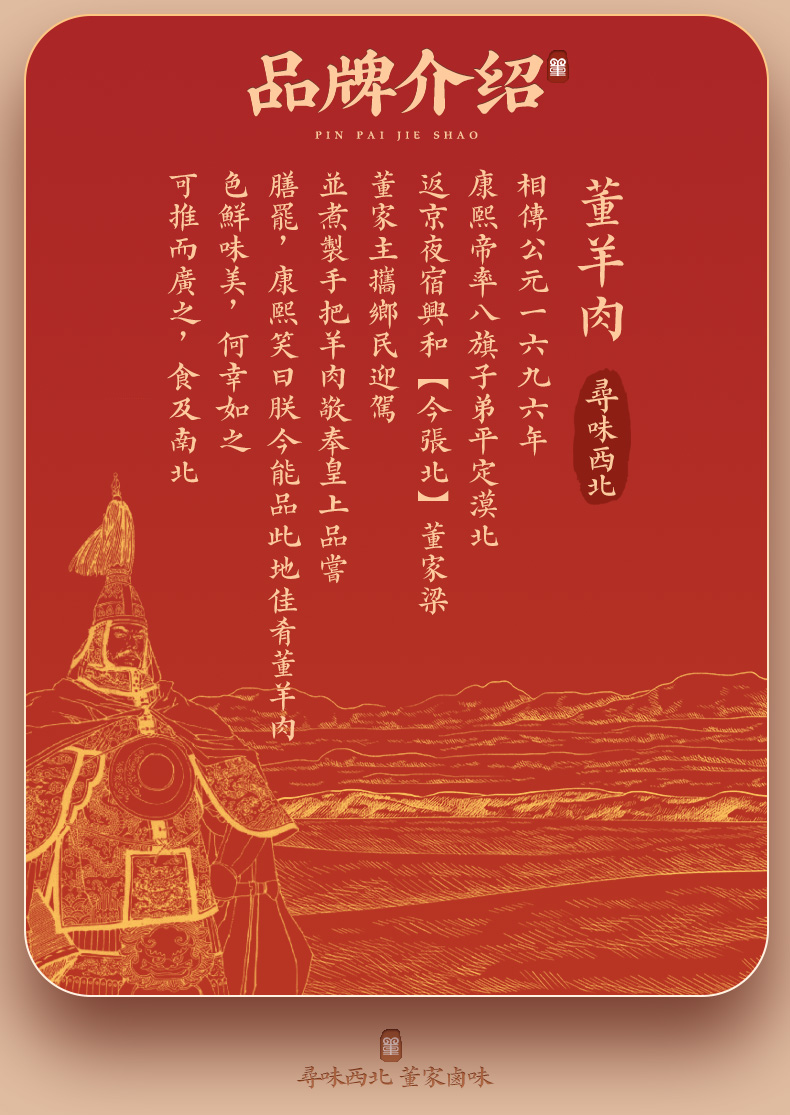 品牌介绍
董
PIN PAI JIE SHAO
董羊肉
尋味西北
相傳公元一六九六年
康熙帝率八旗子弟平定漠北
返京夜宿興和【今張北】董家梁
董家主攜鄉民迎駕
並煮製手把羊肉敬奉皇上品嘗
膳罷，康熙笑曰朕今能品此地佳肴董羊肉
色鮮味美，何幸如之
可推而廣之，食及南北
董
尋味西北 董家鹵味